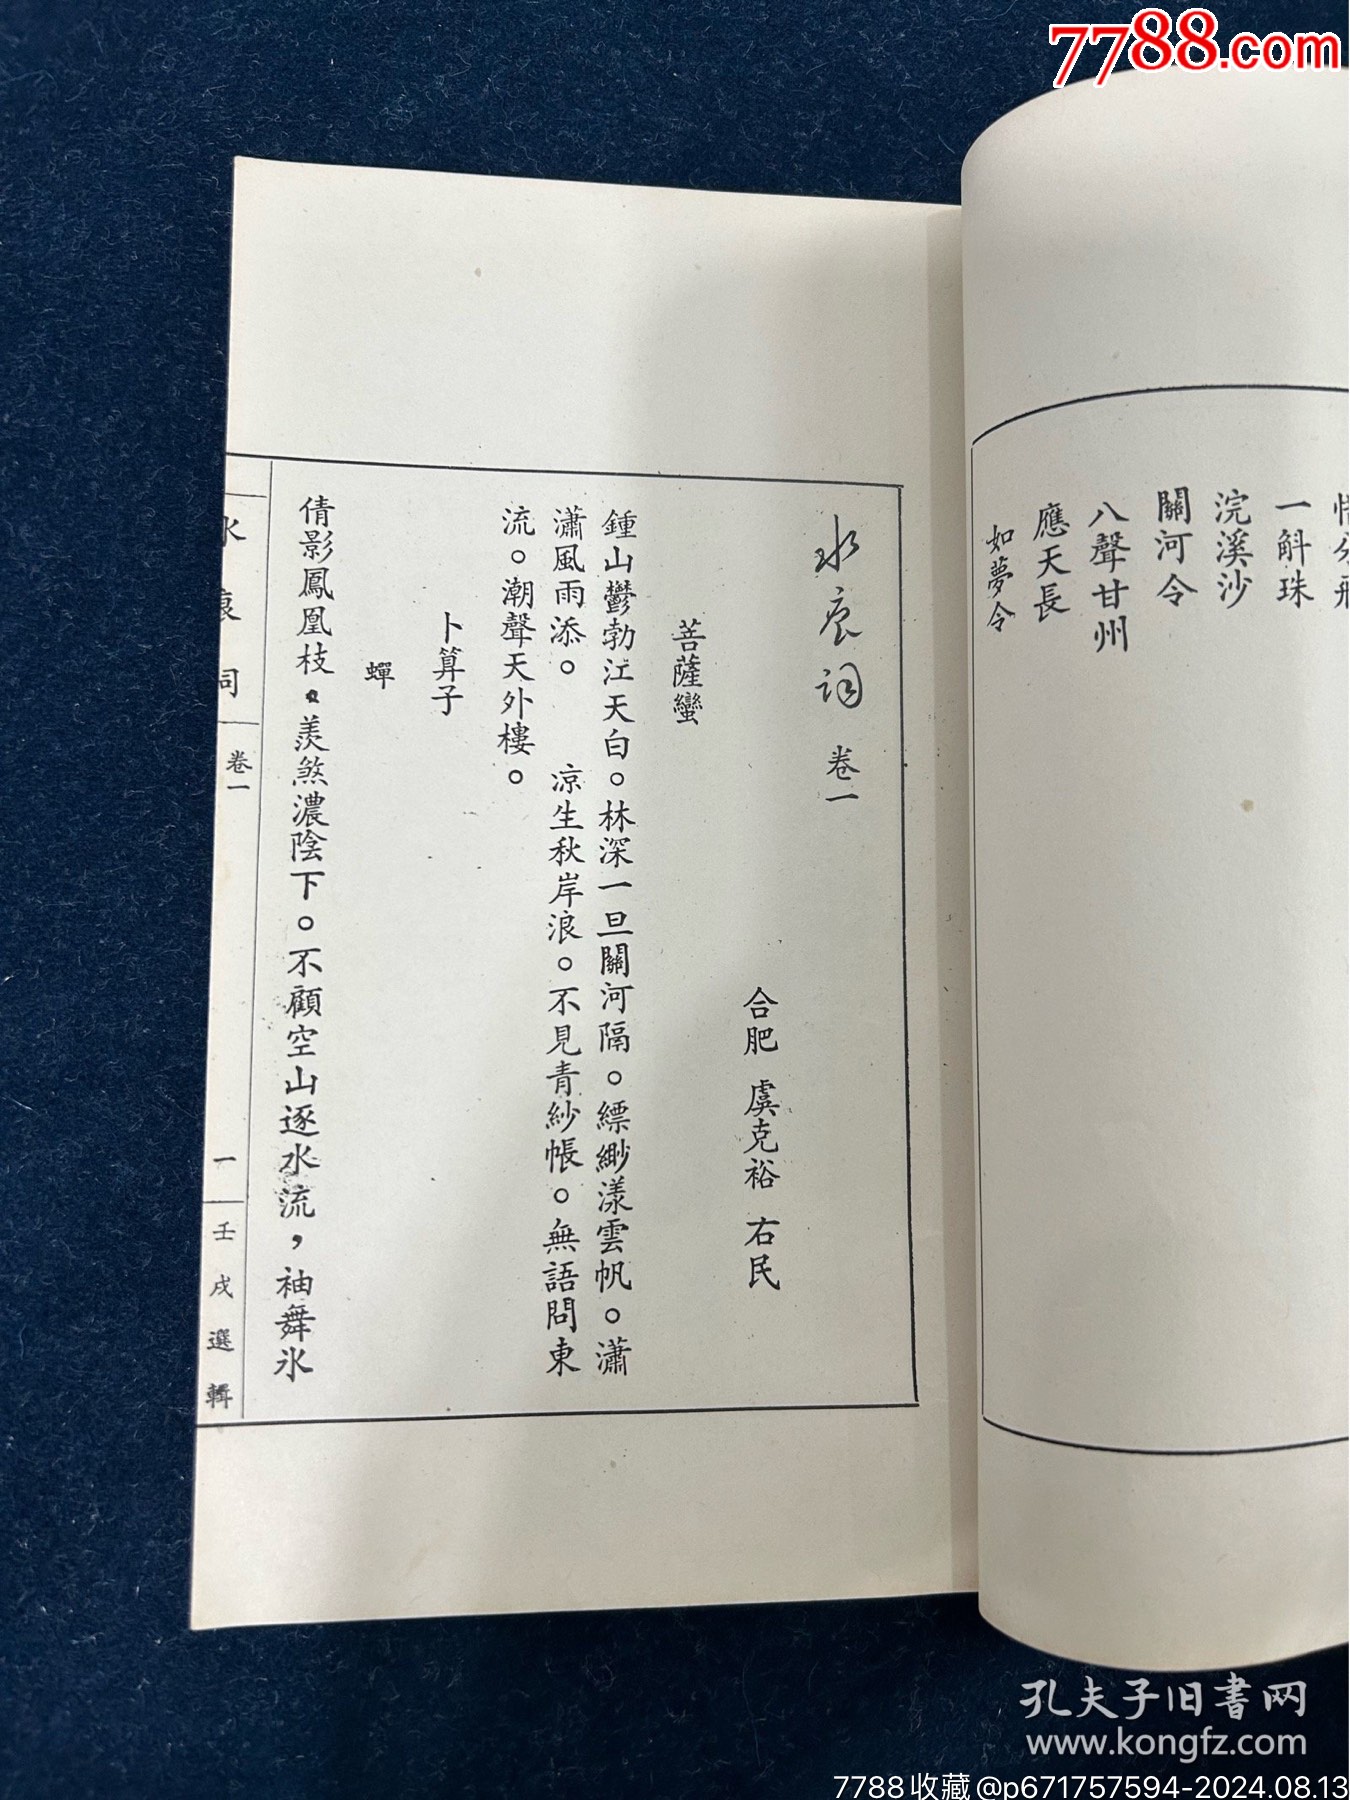 7788.com
惜分飛
一斛珠
浣溪沙
關河令
八聲甘州
應天長
如夢令
水痕词 卷一
合肥 虞克裕 右民
菩薩蠻
鍾山鬱勃江天白。林深一旦關河隔。縹緲漾雲帆。瀟
瀟風雨添。 涼生秋岸浪。不見青紗帳。無語問東
流。潮聲天外樓。
卜算子
蟬
倩影鳳凰枝。羨煞濃陰下。不顧空山逐水流，袖舞氷
水痕詞 卷一 一 壬戌選輯
孔夫子旧書网
www.kongfz.com
7788收藏@p671757594-2024.08.13